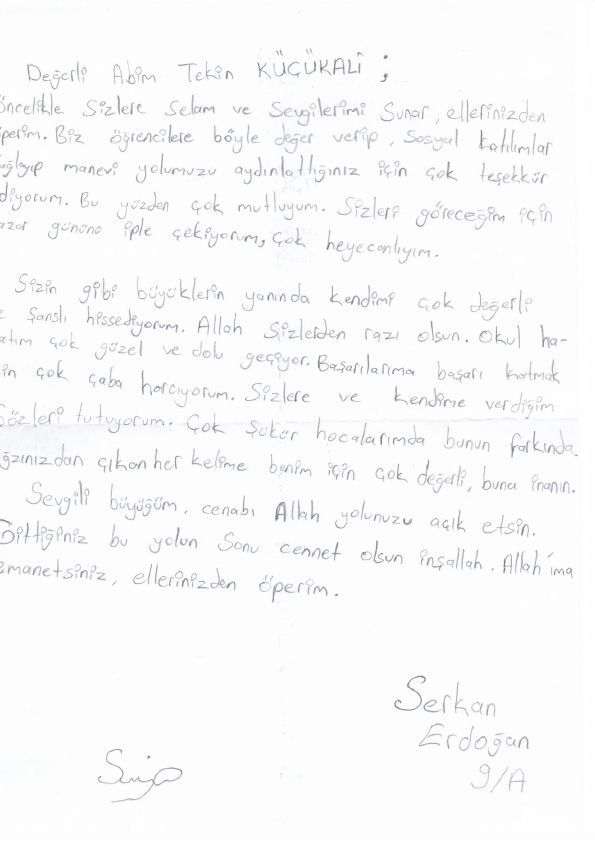 Değerli Abim Tekin KÜÇÜKALİ ;
öncelikle sizlere selam ve sevgilerimi sunar, ellerinizden
öperim. Biz öğrencilere böyle değer verip, sosyal katılımlar
ağlayıp manevi yolumuzu aydınlattığınız için çok teşekkür
diyorum. Bu yüzden çok mutluyum. Sizleri göreceğim için
azar gününü iple çekiyorum, çok heyecanlıyım.
Sizin gibi büyüklerin yanında kendimi çok değerli
şanslı hissediyorum. Allah sizlerden razı olsun. Okul ha-
atım çok güzel ve dolu geçiyor. Başarılarıma başarı katmak
in çok çaba harcıyorum. Sizlere ve kendime verdiğim
Sözleri tutuyorum. Çok şükür hocalarımda bunun farkında.
ğzınızdan çıkan her kelime benim için çok değerli, buna inanın.
Sevgili büyüğüm, cenabı Allah yolunuzu açık etsin.
Gittiğiniz bu yolun sonu cennet olsun inşallah. Allah'ıma
emanetsiniz, ellerinizden öperim.
Serkan
Erdoğan
9/A